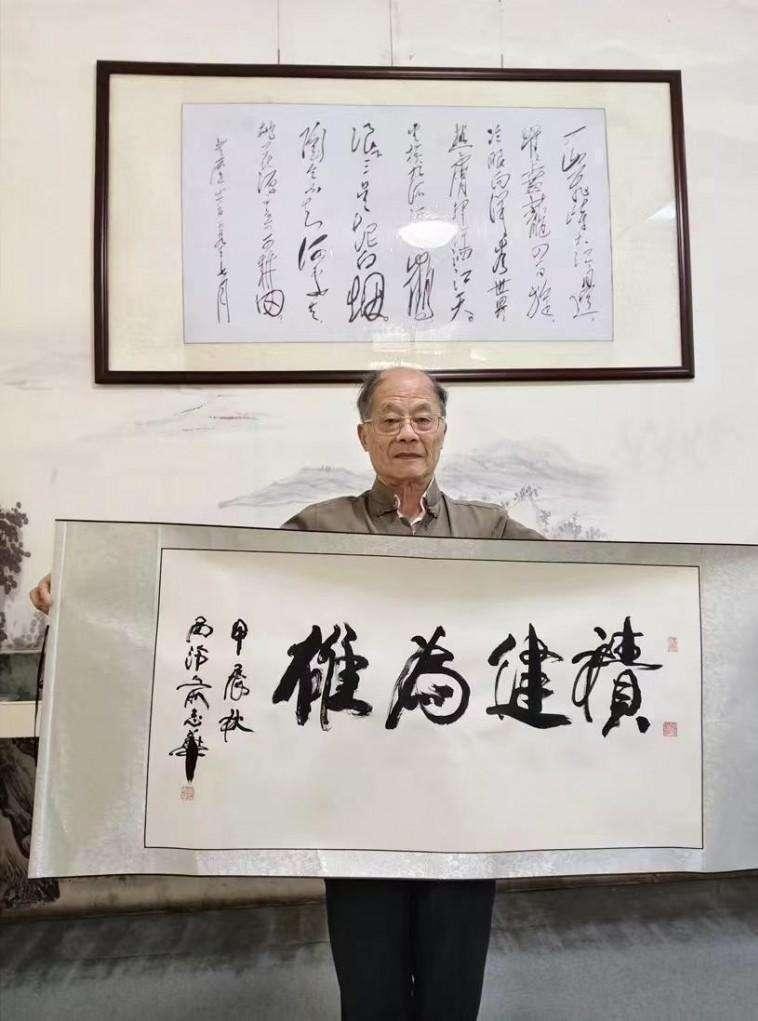 一山飛峙大江邊。
躍上葱蘢四百旋。
冷眼向洋看世界，
熱膚揮汗洒江天。
雲橫九派浮黃鶴
浪下三吳起白烟。
陶令不知何處去，
桃花源里可耕田。
積健為雄
甲辰秋
俞志華